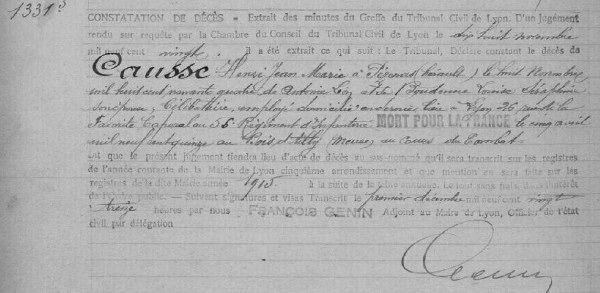 1331 bis
CONSTATATION DE DÉCÈS - Extrait des minutes du Greffe du Tribunal Civil de Lyon. D'un Jugement
rendu sur requête par la Chambre du Conseil du Tribunal Civil de Lyon le dix huit novembre
mil neuf cent vingt. Il a été extrait ce qui suit: Le Tribunal, Déclare constant le décès de
Causse Henri Jean Marie à (Hérault) le huit Novembre
mil huit cent nonante quatre de Antoine Léon et de Prudence Louise Séraphine
Célibataire, employé domicilié à Lyon 26
Favorite Caporal au 55 Régiment d'Infanterie MORT POUR LA FRANCE le cinq avril
mil neuf cent quinze au Bois d'Ailly (Meuse) au cours du Combat.
Dit que le présent jugement tiendra lieu d'acte de décès au sus-nommé qu'il sera transcrit sur les registres
de l'année courante de la Mairie de Lyon cinquième arrondissement et que mention en sera faite sur les
registres de la dite Mairie année 1915 à la suite de la Le tout sans frais, dans l'intérêt
de l'ordre public. — Suivent signatures et visas Transcrit le premier décembre mil neuf cent vingt
treize heures par nous FRANÇOIS GENIN Adjoint au Maire de Lyon, Officier de l'état
civil par délégation
Genin